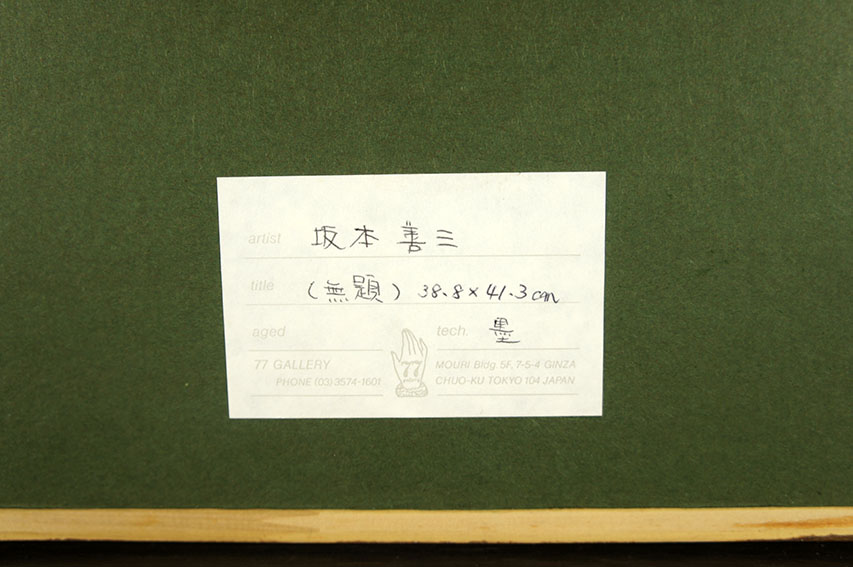 artist 坂本善三
title (無題) 38.8×41.3cm
aged
tech. 墨
77 GALLERY
PHONE (03)3574-1601
77
MOURI Bldg. 5F, 7-5-4 GINZA
CHUO-KU TOKYO 104 JAPAN